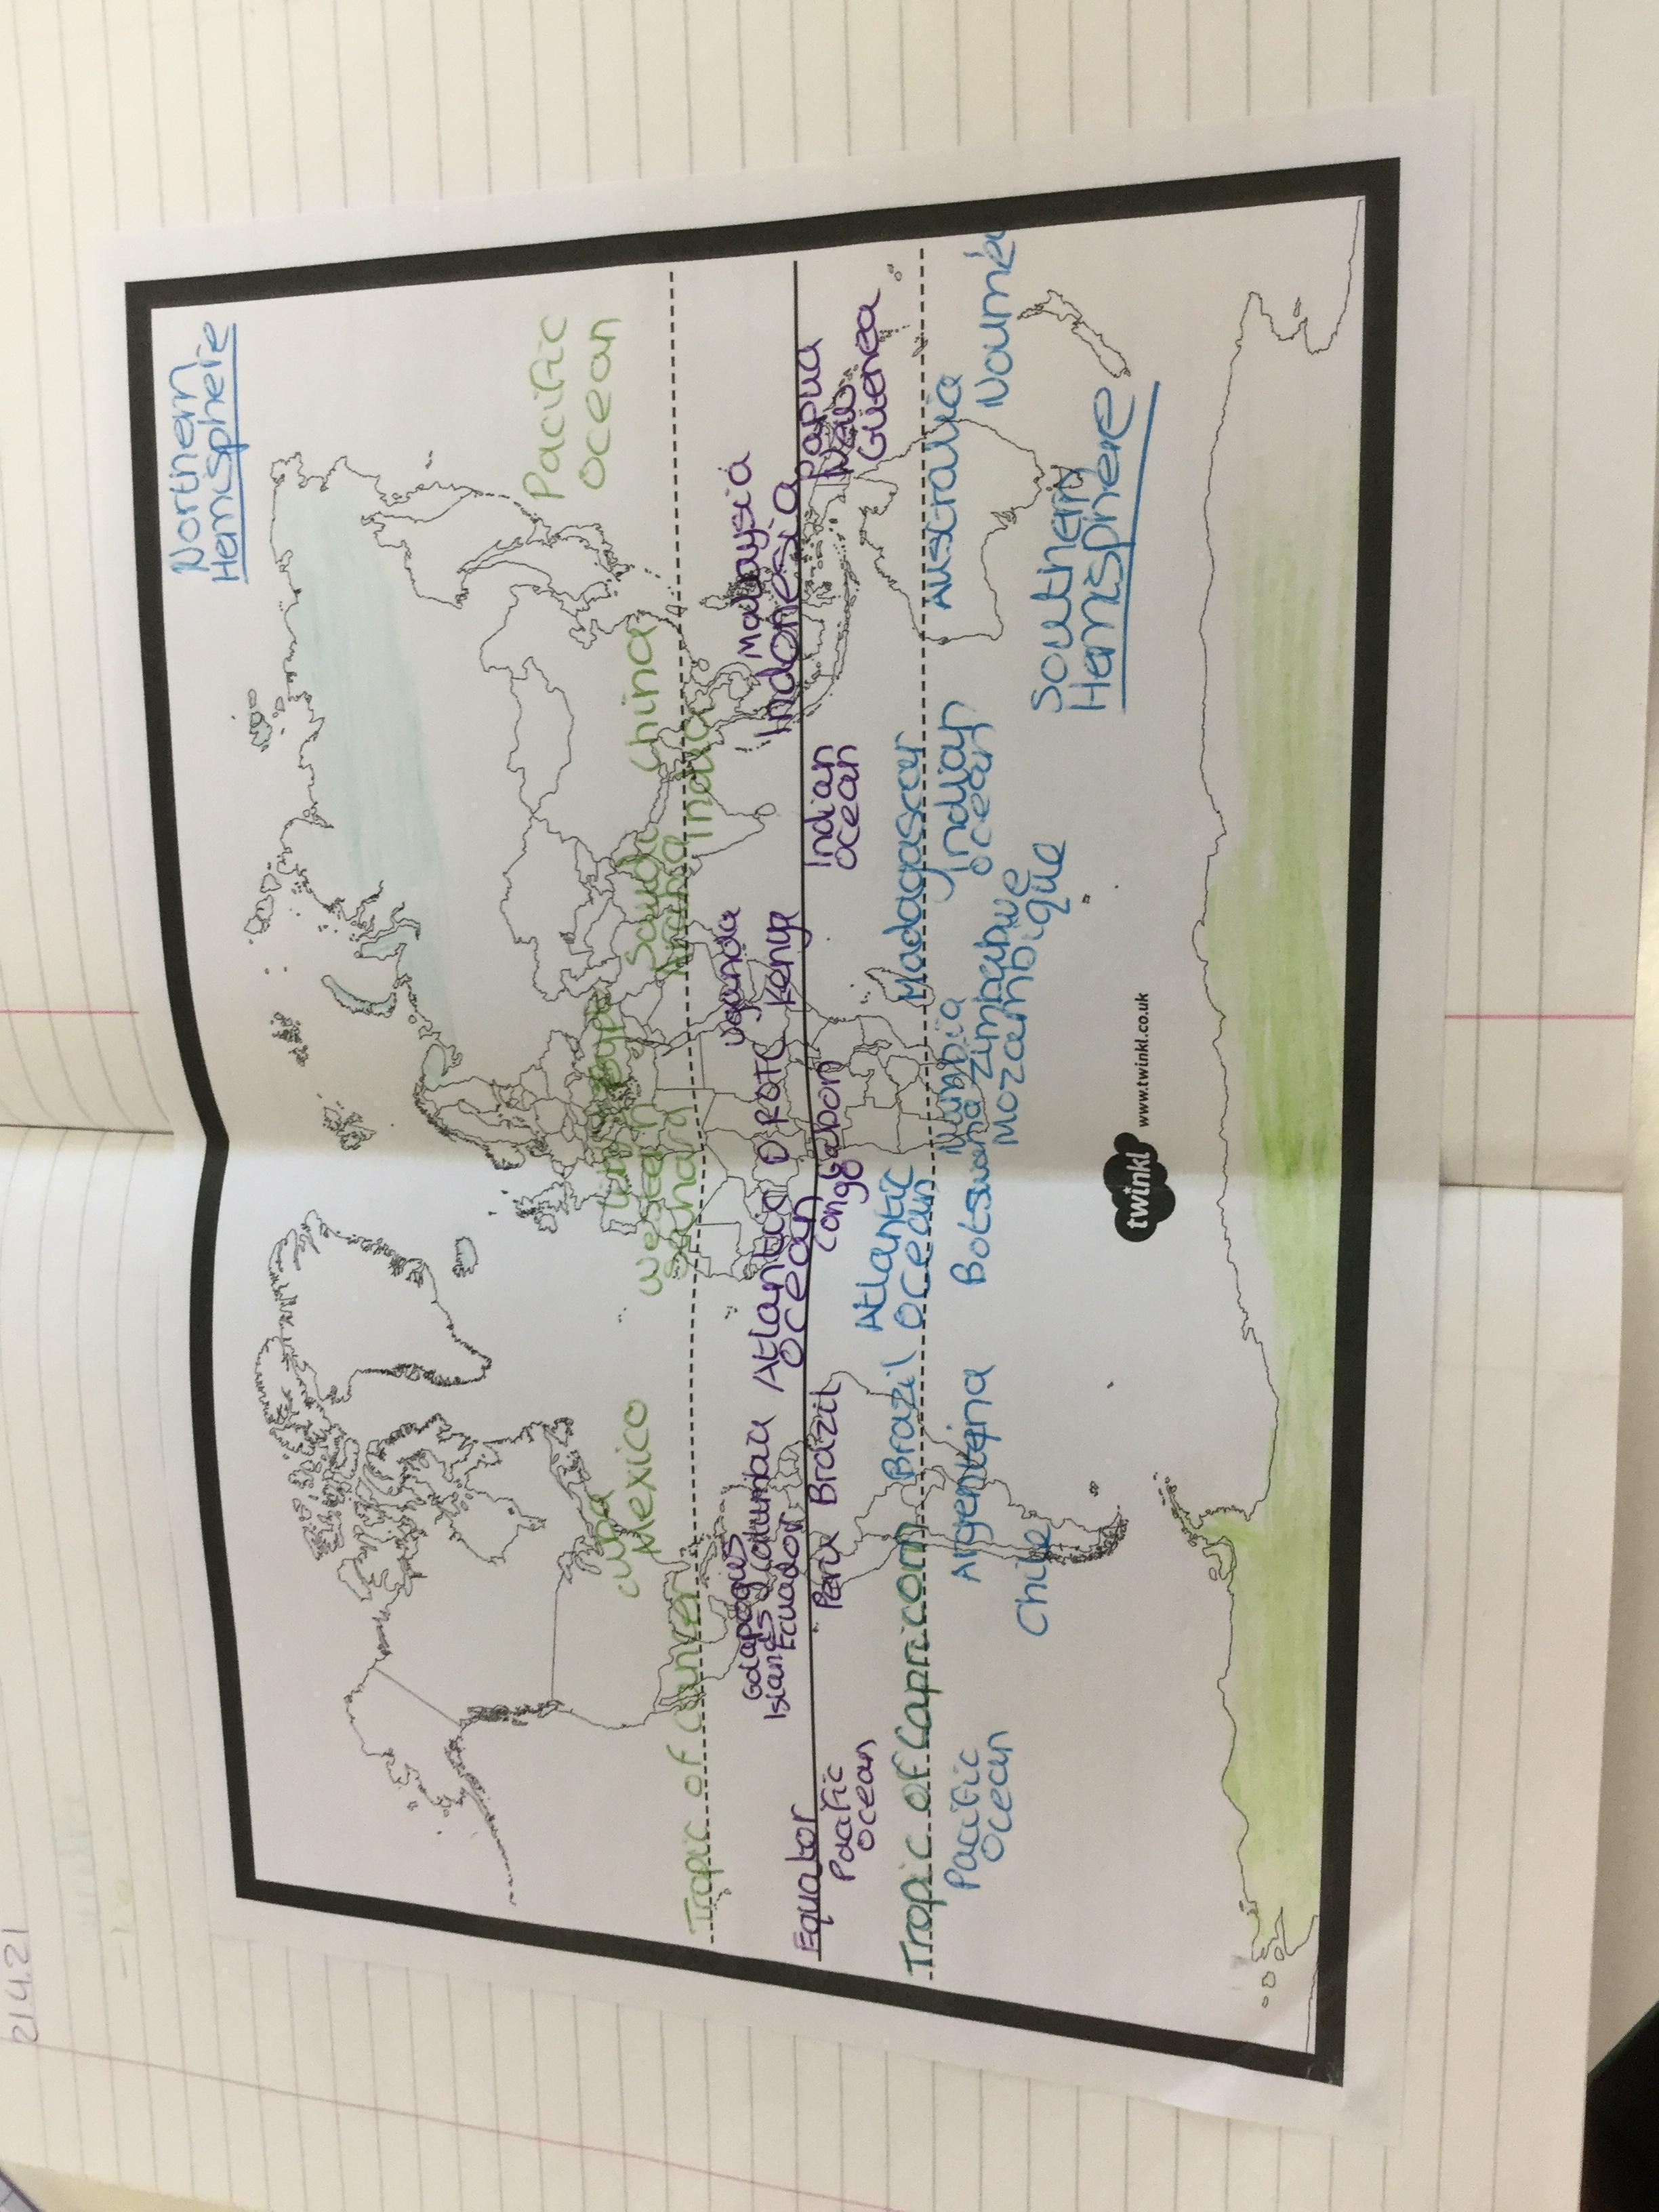 21.4.21
Northern
Hemisphere
Pacific
Ocean
Cuba
Mexico
Western
Sahara
Egypt
Saudi
Arabia
China
India
Tropic of Cancer
Galapagus
Islands
Columbia
Ecuador
Atlantic
Ocean
DROTC
Uganda
Kenya
Malaysia
Indonesia
Papua
New
Guenea
Equator
Pacific
Ocean
Peru
Brazil
Congo
Gabon
Indian
Ocean
Tropic of Capricorn
Brazil
Atlantic
Ocean
Madagascar
Australia
Pacific
Ocean
Argentina
Chile
Botswana
Zimbabwe
Mozambique
Indian
Ocean
Southern
Hemisphere
twinkl
www.twinkl.co.uk